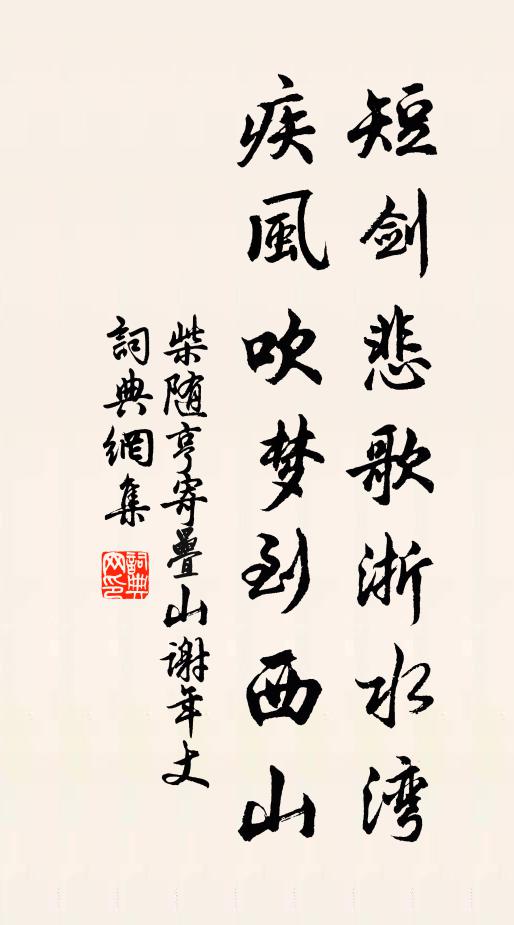 短剑悲歌浙水湾
疾風吹梦到西山
柴随亨寄疊山谢年丈
詞典網集
詞典网印